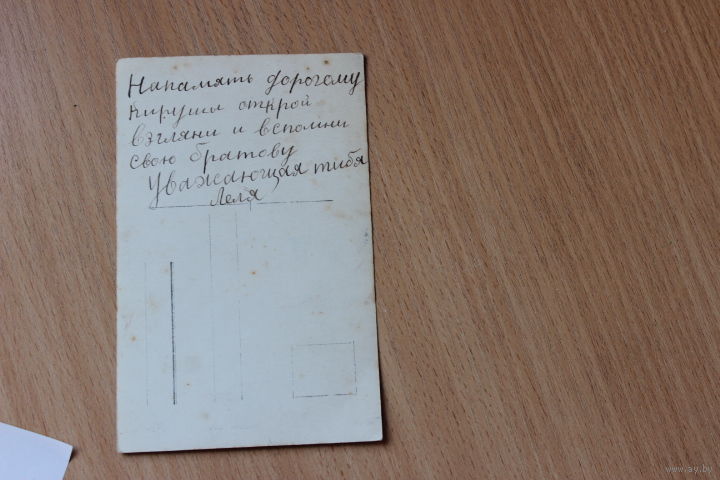 Напамять дорогому
Кируши открой
взгляни и вспомни
свою братову
Уважающая тибя
Леля
www.ay.by